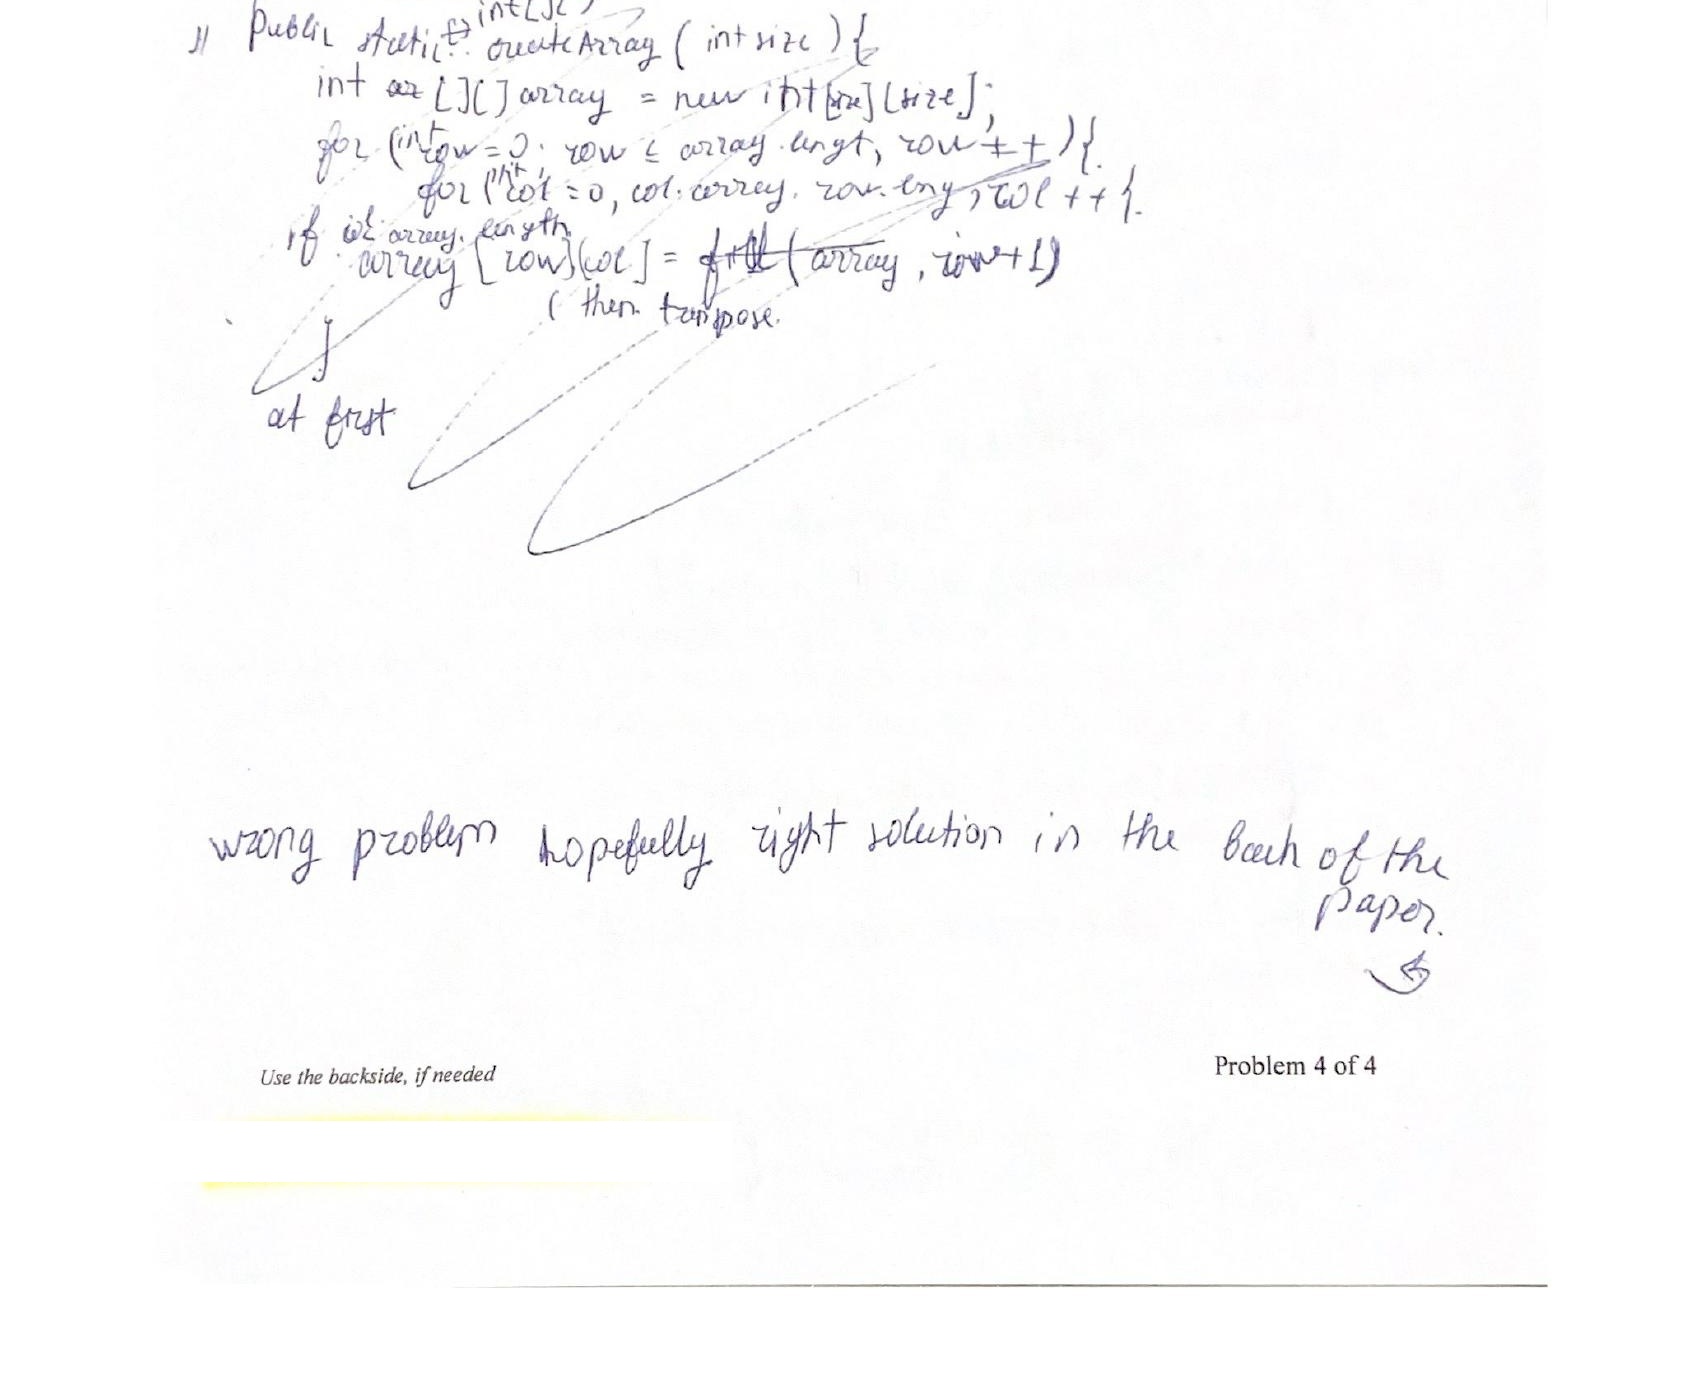 int[][]
1) public static createArray ( int size ) {
int [ ][ ] array = new int[size][size];
for (int row = 0; row ≤ array. lengt, row ++ ){
for (int col = 0, col. array. row. leng, col ++ {
if col array. length
array [row][col] = fill (array , row+1)
( then transpose.
}
at first
wrong problem hopefully right solution in the back of the
paper.
Use the backside, if needed
Problem 4 of 4